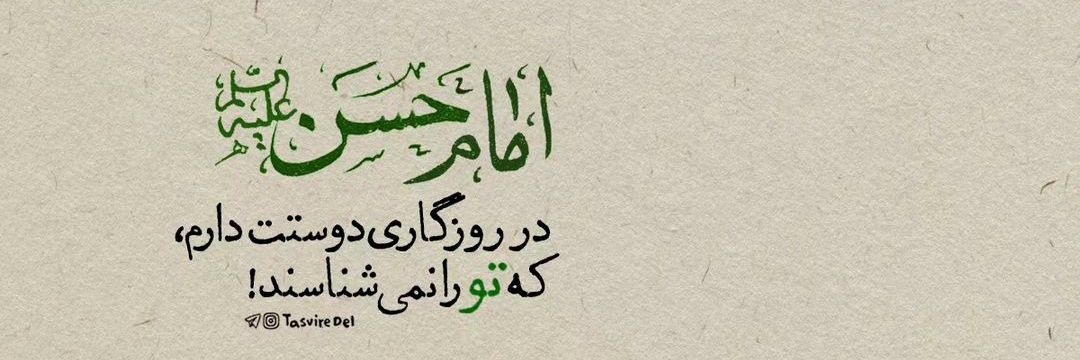 امام حسن علیه السلام
در روزگاری دوستت دارم،
که تو را نمی‌شناسند!
Tasvire Del